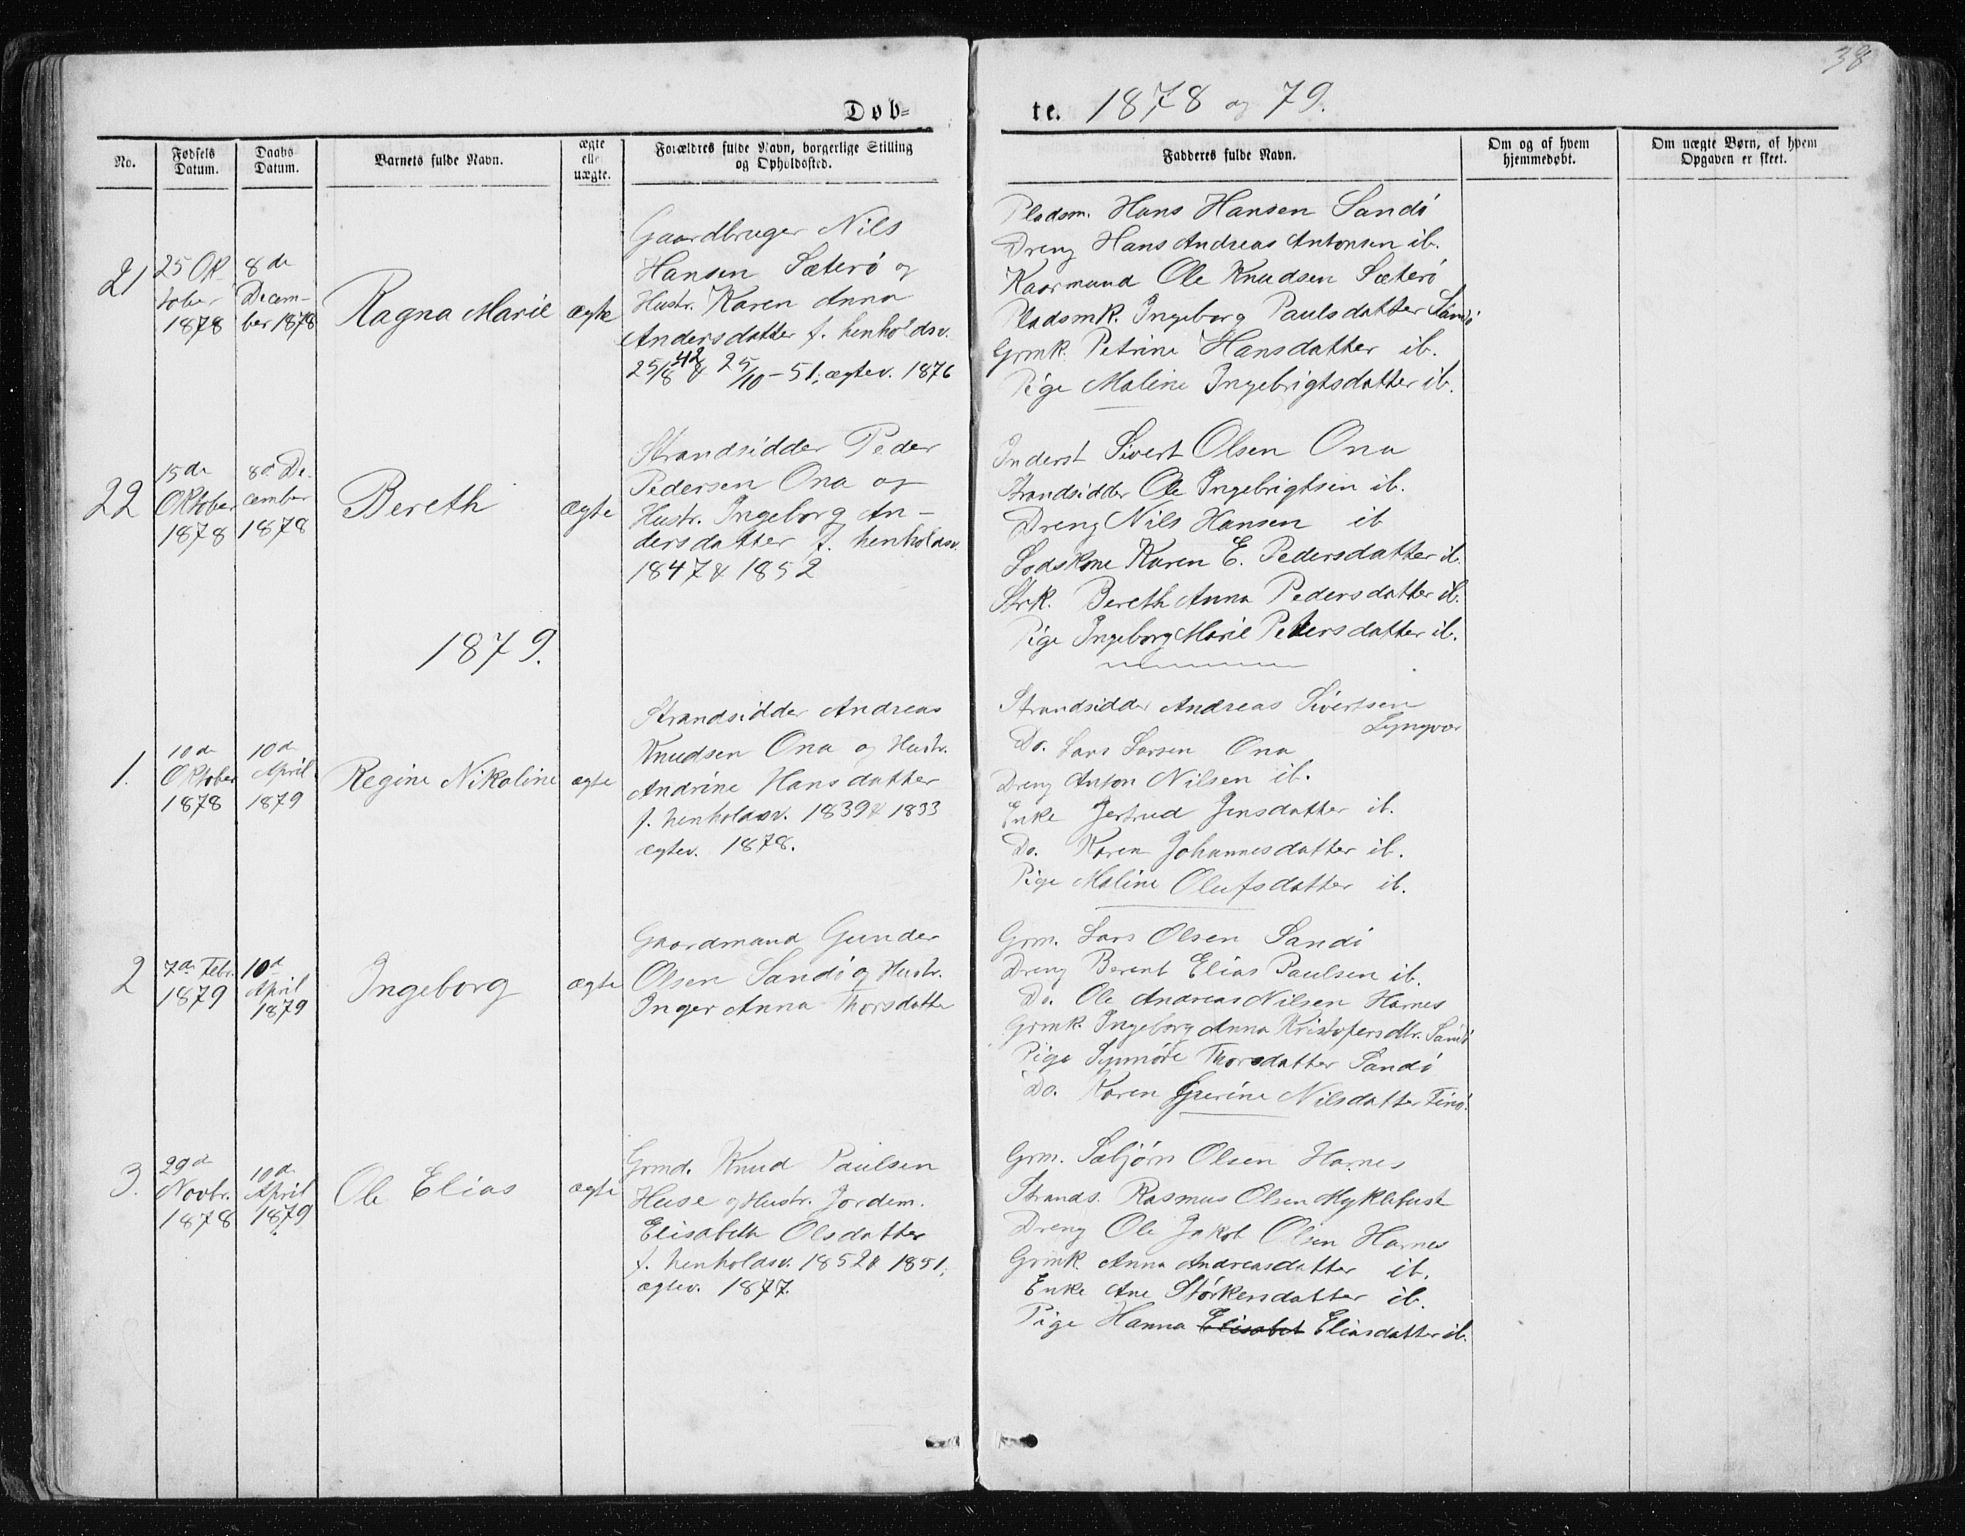 38
Døbte. 1878 og 79.
No.
Fødsels Datum.
Daabs Datum.
Barnets fulde Navn.
ægte eller uægte.
Forældres fulde Navn, borgerlige Stilling og Opholdssted.
Fadderes fulde Navn.
Om og af hvem hjemmedøbt.
Om uægte Børn, af hvem Opgaven er skeet.
21
25 Ok-
tober
1878
8de
Decem-
ber 1878
Ragna Marie
ægte
Gaardbruger Nils
Hansen Sæterø og
Hustr. Karen Anna
Andersdatter f. henholdsv.
25/8 42 & 25/10 - 51; ægtev. 1876
Pladsm. Hans Hansen Sandø
Dreng Hans Andreas Antonsen ib.
Kaarmand Ole Knudsen Sæterø
Pladsmk. Ingeborg Paulsdatter Sandø
Grmk. Petrine Hansdatter ib.
Pige Maline Ingebrigtsdatter ib.
22
15de
Oktober
1878
8d De-
cember
1878
Bereth
ægte
Strandsidder Peder
Pedersen Ona og
Hustr. Ingeborg An-
dersdatter f. henholdsv.
1847 & 1852
Inderst Sivert Olsen Ona
Strandsidder Ole Ingebrigtsen ib.
Dreng Nils Hansen ib
Lodskone Karen E. Pedersdatter ib.
Strk. Bereth Anna Pedersdatter ib.
Pige Ingeborg Marie Petersdatter ib.
1879.
1.
10de
Oktober
1878
10de
April
1879
Regine Nikoline
ægte
Strandsidder Andreas
Knudsen Ona og Hustr.
Andrine Hansdatter
f. henholdsv. 1839 & 1833
ægtev. 1878.
Strandsidder Andreas Sivertsen
Lyngvær
Do. Lars Larsen Ona
Dreng Anton Nilsen ib.
Enke Jertrud Jensdatter ib.
Do. Karen Johannesdatter ib.
Pige Maline Olufsdatter ib.
2
7de Febr.
1879
10d
April
1879
Ingeborg
ægte
Gaardmand Gunder
Olsen Sandø og Hustr.
Inger Anna Thorsdatter
Grm. Lars Olsen Sandø
Dreng Berent Elias Paulsen ib.
Do. Ole Andreas Nilsen Harnes
Grmk. Ingeborg Anna Kristofersdtr. Sandø
Pige Synnøve Thorsdatter Sandø
Do. Karen Gurine Nilsdatter Finø.
3.
29d
Novbr.
1878
10de
April
1879
Ole Elias
ægte
Grmd. Knud Paulsen
Huse og Hustr. Jordem.
Elisabeth Olsdatter
f. henholdsv. 1852 & 1851;
ægtev. 1877.
Grm. Sæbjørn Olsen Harnes
Strands. Rasmus Olsen Myklebust
Dreng Ole Jakob Olsen Harnes
Grmk Anna Andreasdatter ib.
Enke Ane Størkersdatter ib.
Pige Hanna Elisabet Eliasdatter ib.